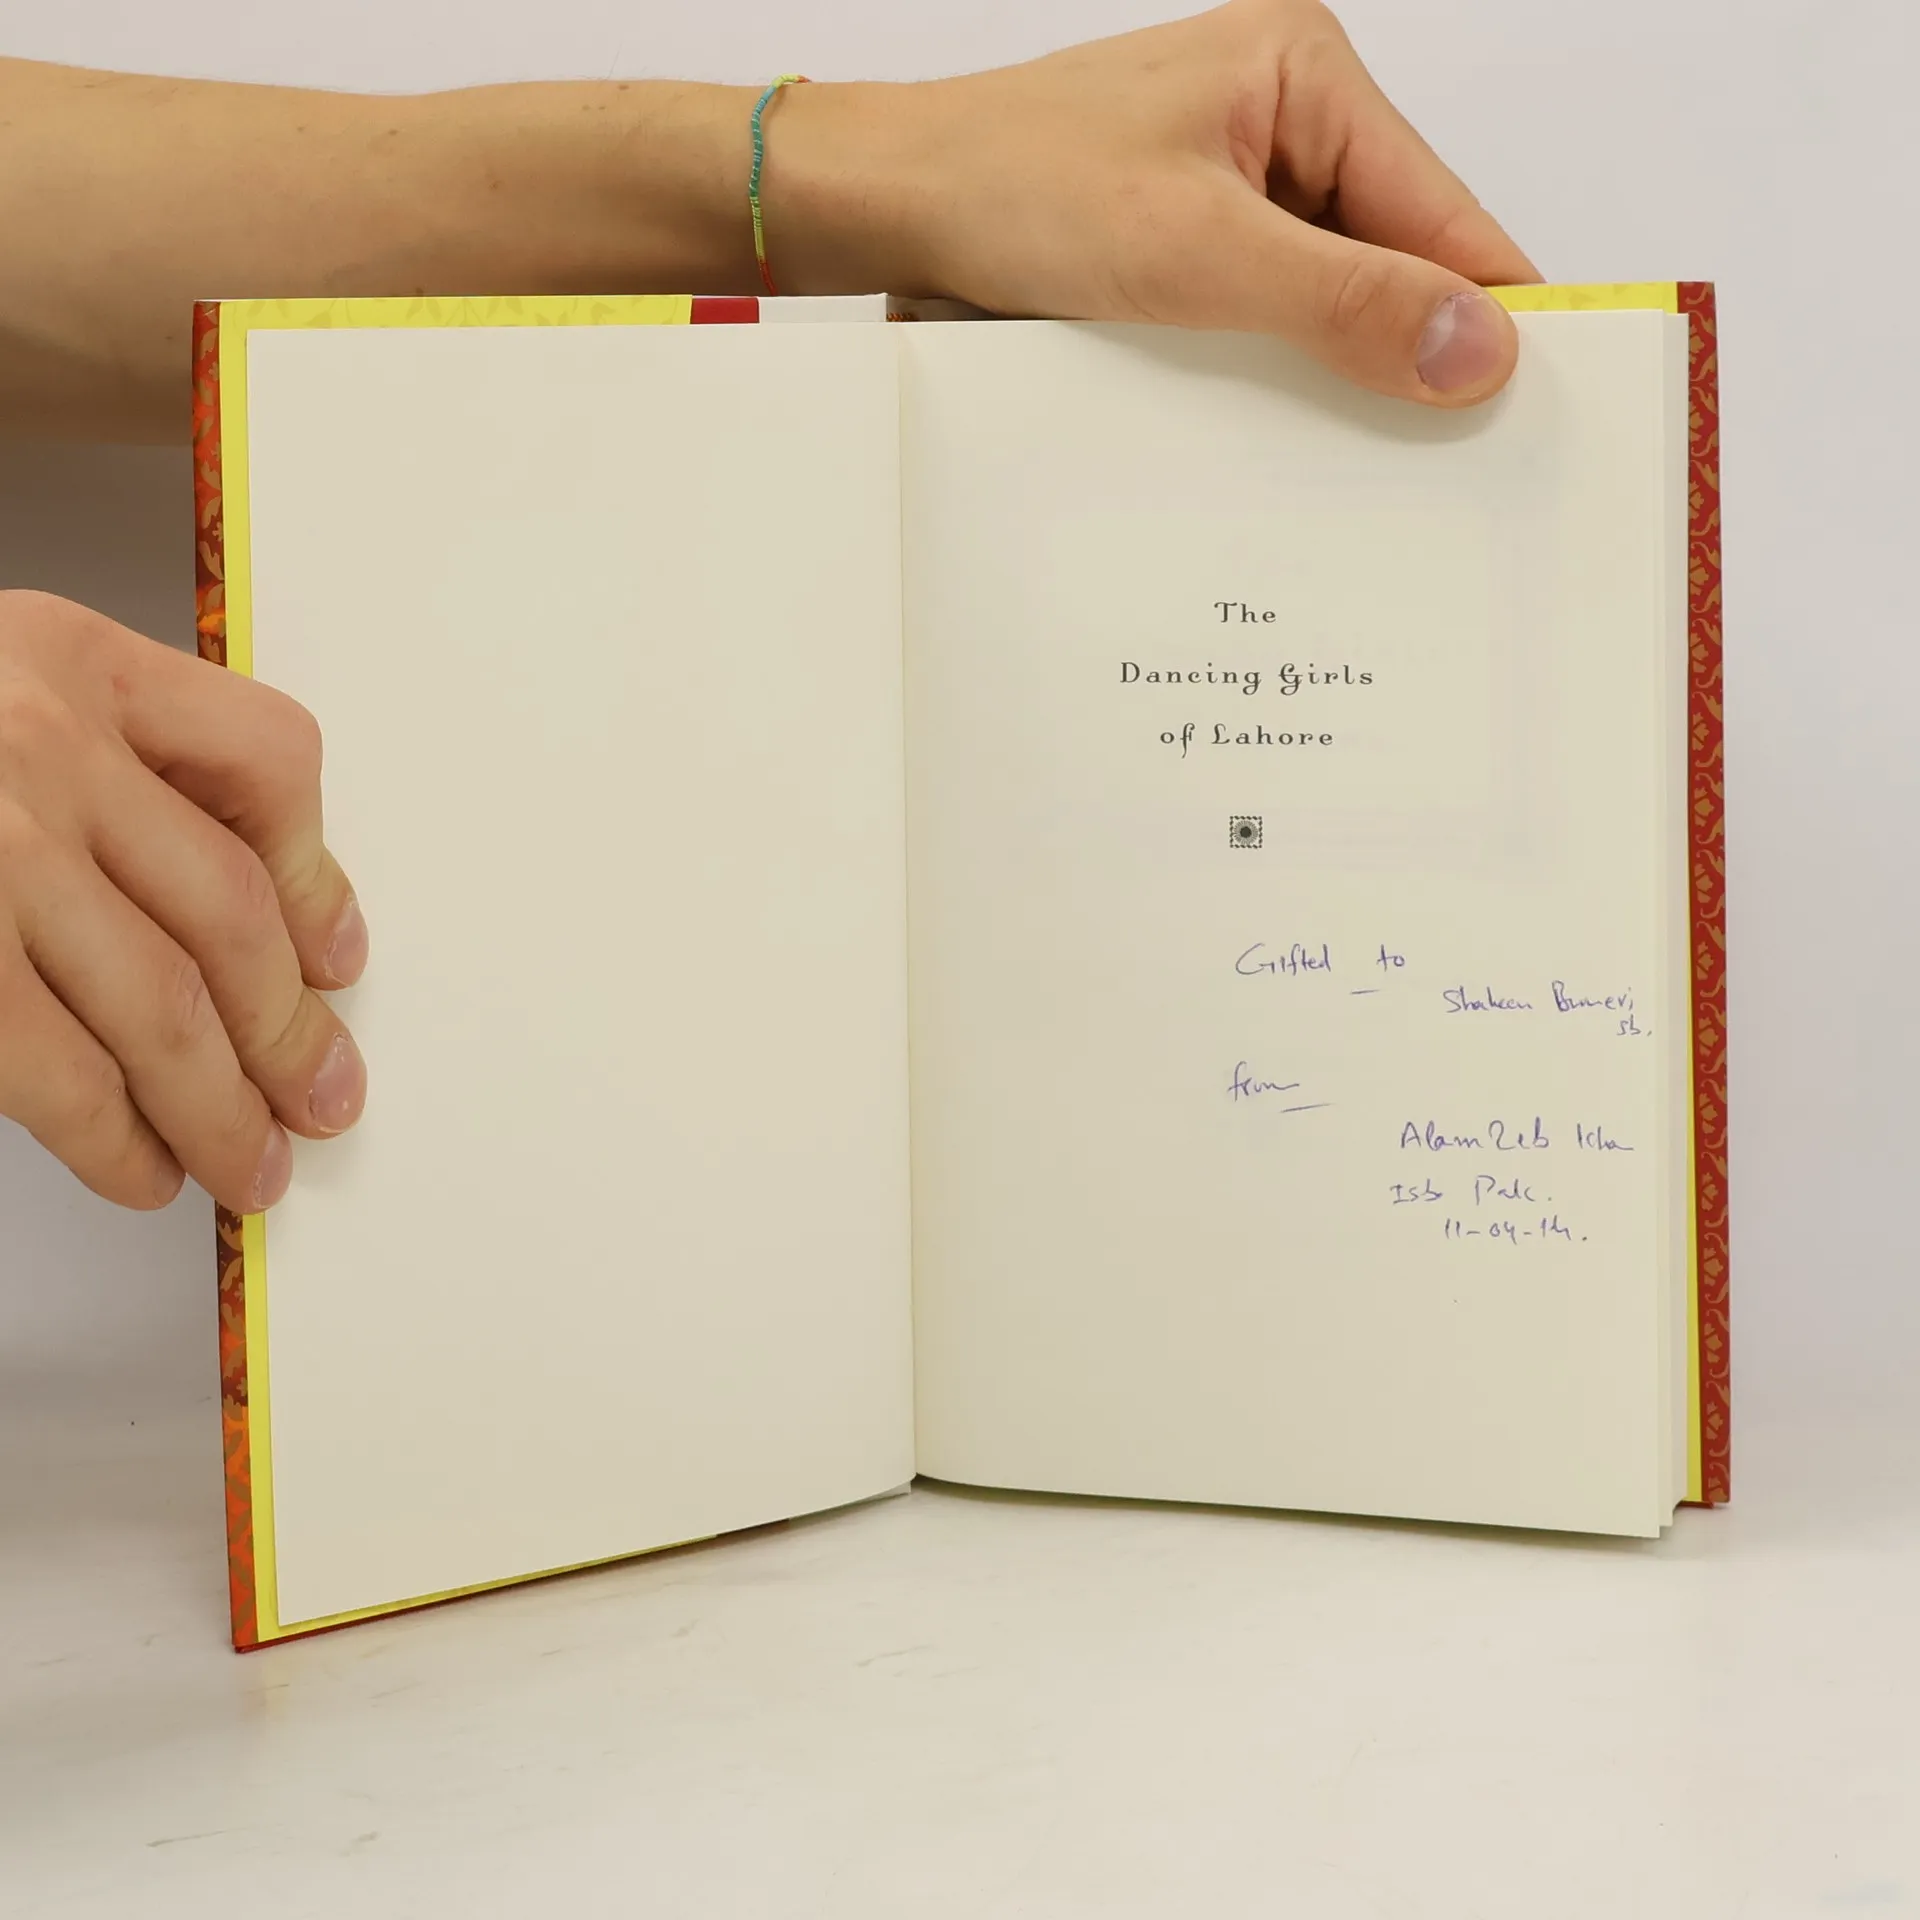 The
Dancing Girls
of Lahore
Gifted to
Shaheen Buneri
sb.
from
AlamZeb Kha
Isb Pak.
11-04-14.